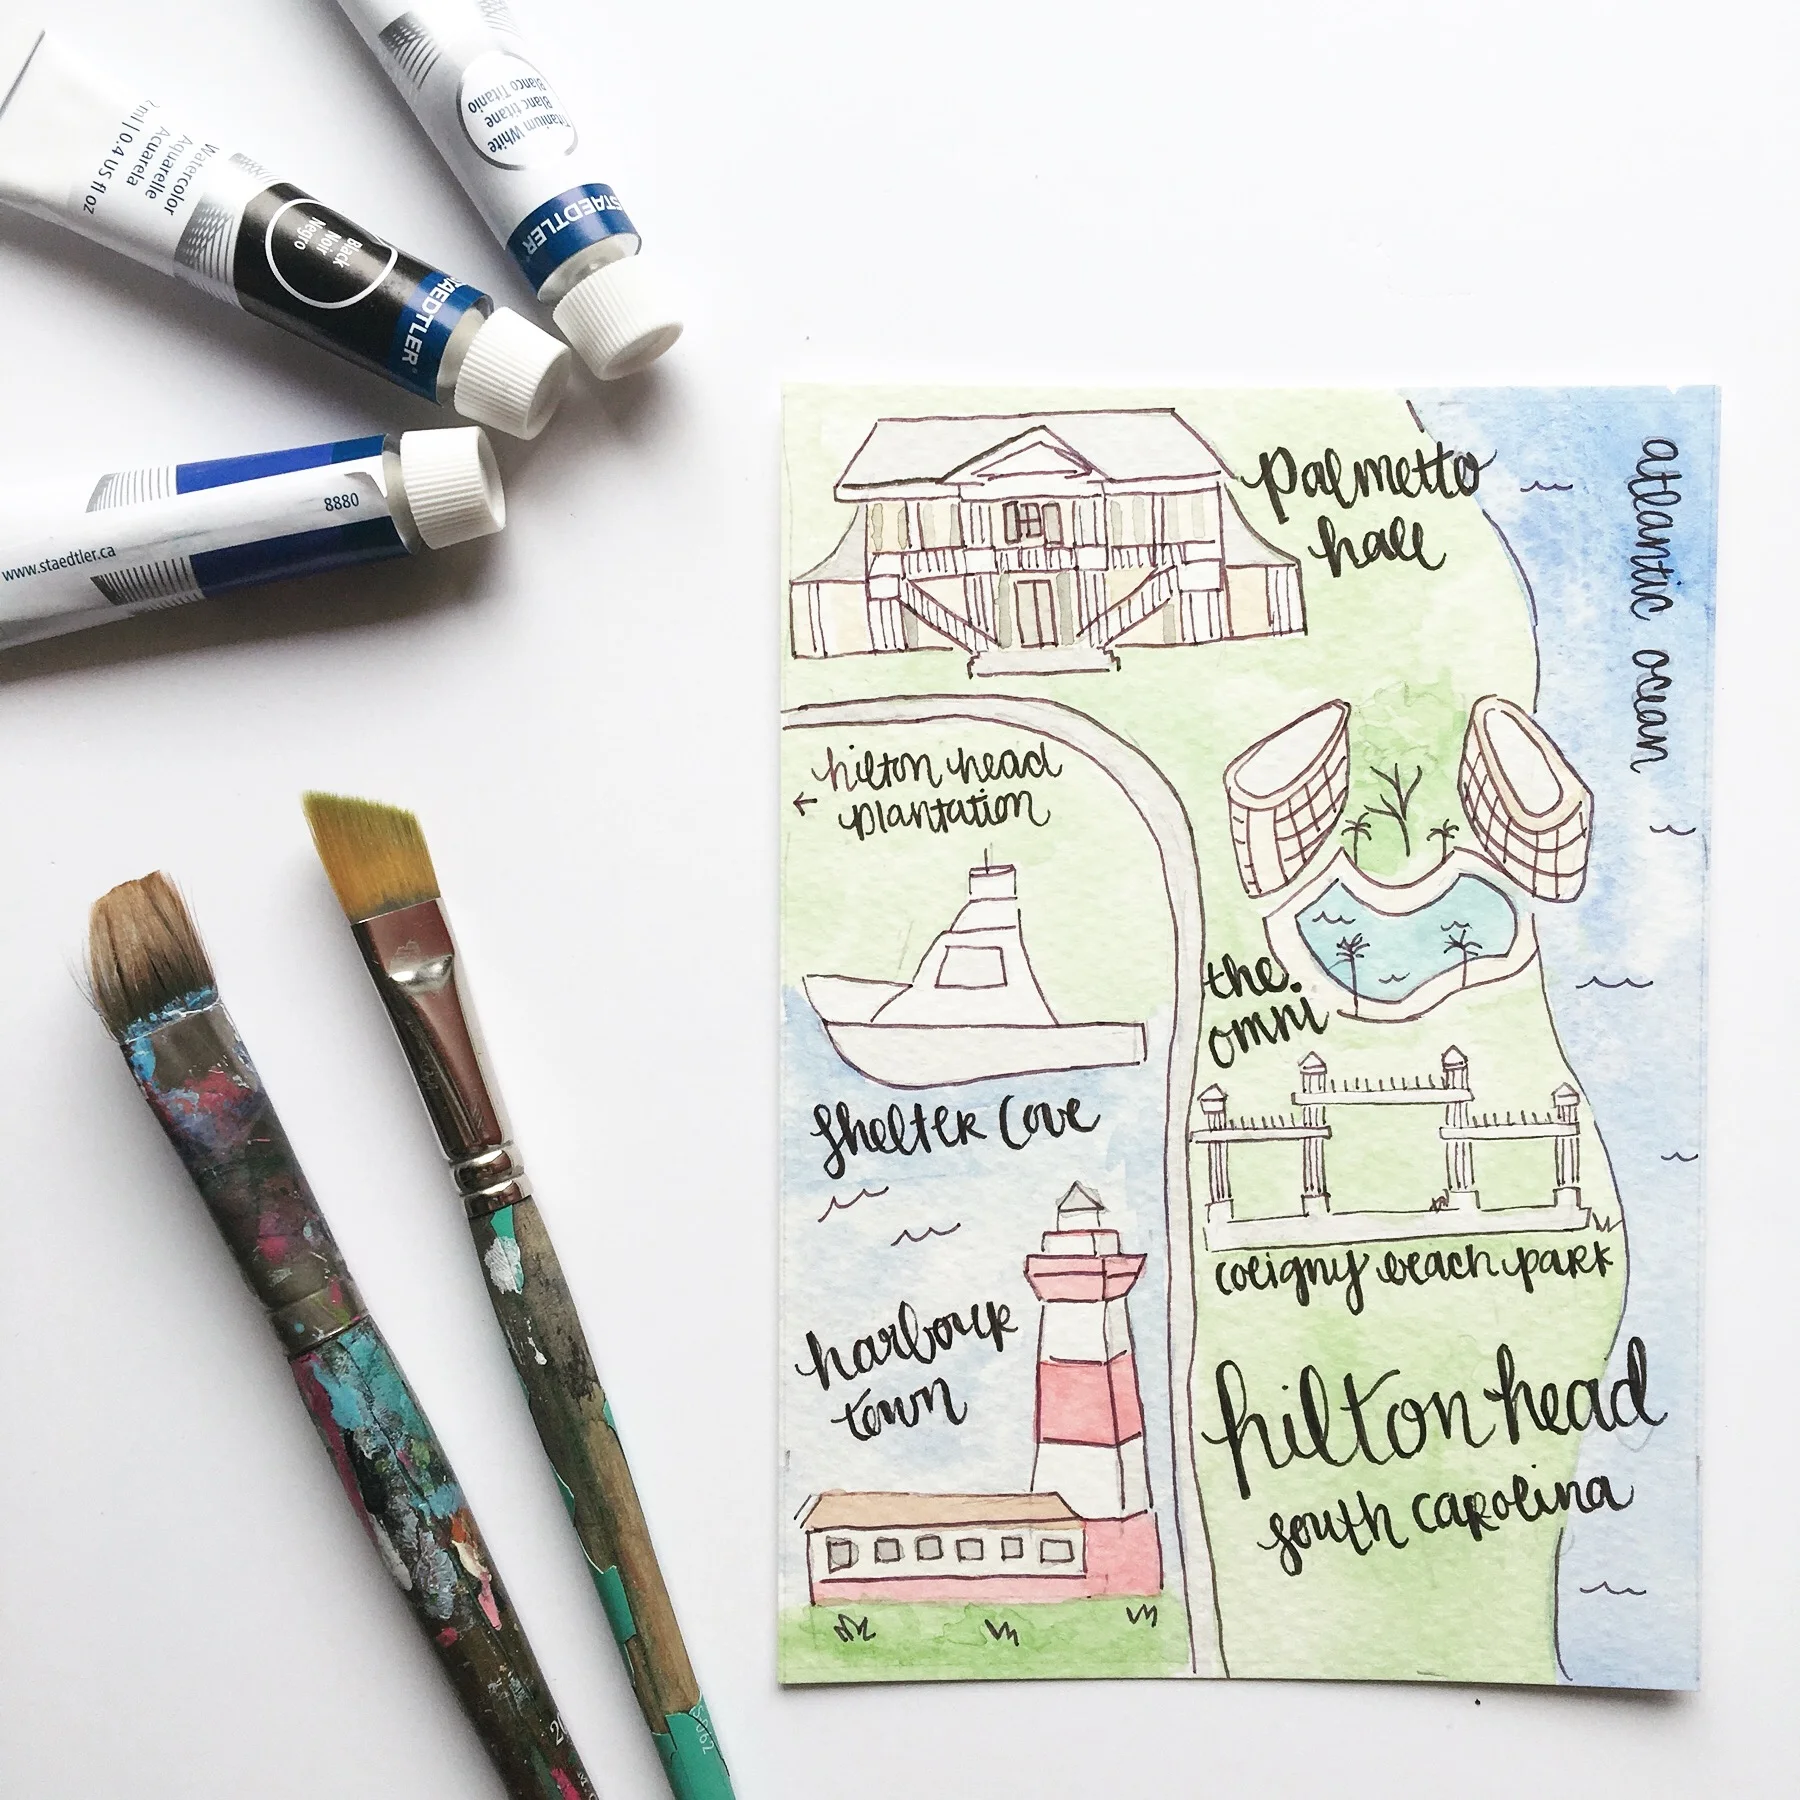 Titanium White
Blanc titane
Blanco Titanio
STAEDTLER
Watercolor
Aquarelle
Acuarela
ml | 0.4 US fl oz
Black
Noir
Negro
STAEDTLER
8880
www.staedtler.ca
palmetto
hall
atlantic ocean
hilton head
← plantation
the
omni
shelter cove
coligny beach park
harbour
town
hilton head
south carolina